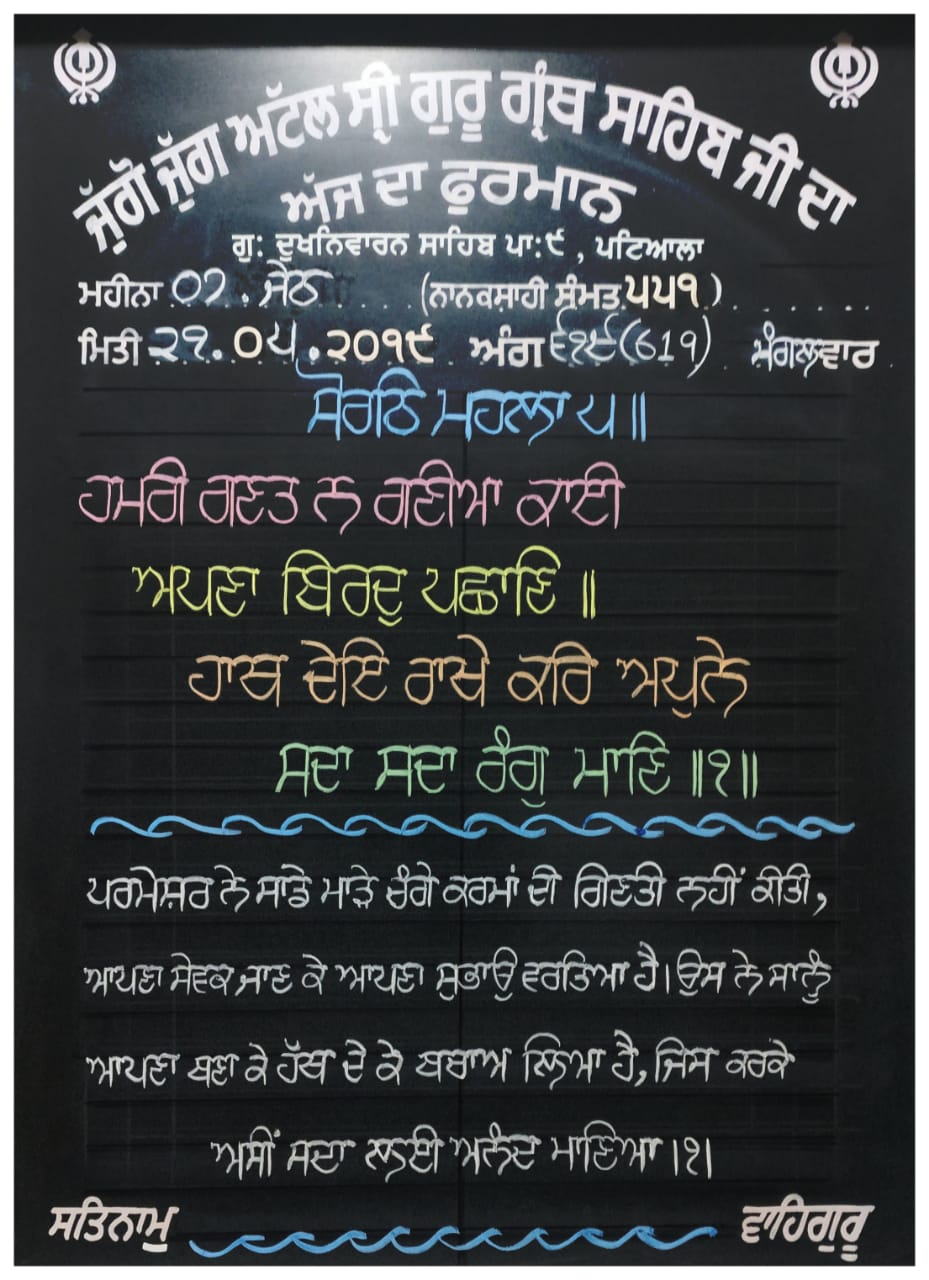 ਜੁੱਗੋ ਜੁੱਗ ਅਟੱਲ ਸ੍ਰੀ ਗੁਰੂ ਗ੍ਰੰਥ ਸਾਹਿਬ ਜੀ ਦਾ
ਅੱਜ ਦਾ ਫੁਰਮਾਨ
ਗੁ: ਦੁਖਨਿਵਾਰਨ ਸਾਹਿਬ ਪਾ:੯, ਪਟਿਆਲਾ
ਮਹੀਨਾ ੦੭. ਜੇਠ (ਨਾਨਕਸ਼ਾਹੀ ਸੰਮਤ ੫੫੧)
ਮਿਤੀ ੨੧.੦੫.੨੦੧੯ ਅੰਗ ੬੧੯(619) ਮੰਗਲਵਾਰ
ਸੋਰਠਿ ਮਹਲਾ ੫॥
ਹਮਰੀ ਗਣਤ ਨ ਗਣੀਆ ਕਾਈ
ਅਪਣਾ ਬਿਰਦੁ ਪਛਾਣਿ॥
ਹਾਥ ਦੇਇ ਰਾਖੇ ਕਰਿ ਅਪੁਨੇ
ਸਦਾ ਸਦਾ ਰੰਗੁ ਮਾਣਿ॥੧॥
ਪਰਮੇਸ਼ਰ ਨੇ ਸਾਡੇ ਮਾੜੇ ਚੰਗੇ ਕਰਮਾਂ ਦੀ ਗਿਣਤੀ ਨਹੀਂ ਕੀਤੀ,
ਆਪਣਾ ਸੇਵਕ ਜਾਣ ਕੇ ਆਪਣਾ ਸੁਭਾਉ ਵਰਤਿਆ ਹੈ। ਉਸ ਨੇ ਸਾਨੂੰ
ਆਪਣਾ ਬਣਾ ਕੇ ਹੱਥ ਦੇ ਕੇ ਬਚਾਅ ਲਿਆ ਹੈ, ਜਿਸ ਕਰਕੇ
ਅਸੀਂ ਸਦਾ ਲਈ ਅਨੰਦ ਮਾਣਿਆ।੧।
ਸਤਿਨਾਮੁ ਵਾਹਿਗੁਰੂ